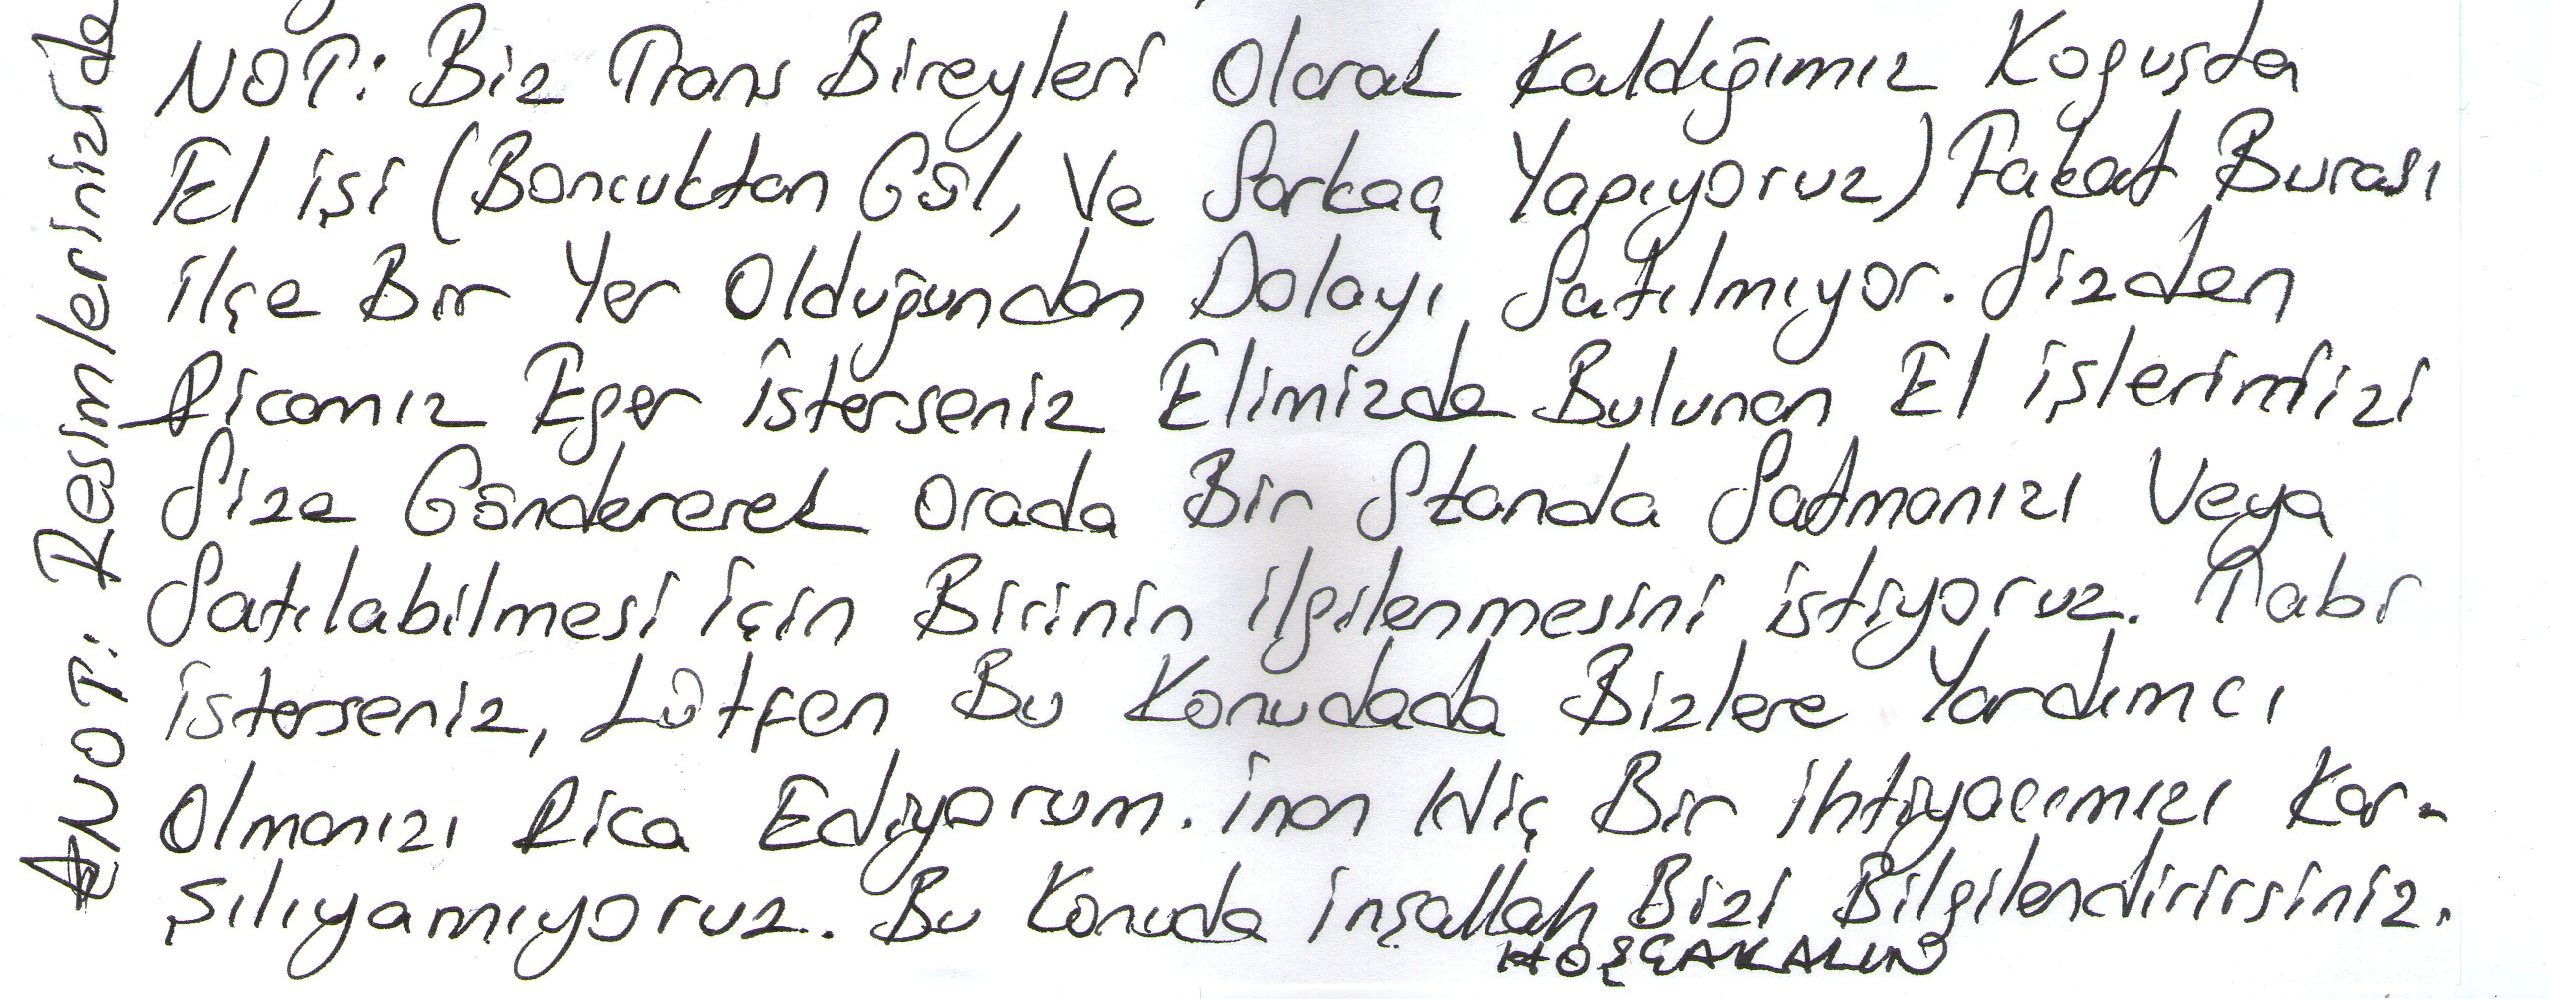 NOT: Biz Trans Bireyleri Olarak Kaldığımız Koğuşta
El işi (Boncuktan Gül, Ve Sarkaç Yapıyoruz) Fakat Burası
ilçe Bir Yer Olduğundan Dolayı Satılmıyor. Sizden
Ricamız Eğer İsterseniz Elimizde Bulunan El işlerimizi
Size Göndererek Orada Bir Standa Satmanızı Veya
Satılabilmesi için Birinin ilgilenmesini istiyoruz. Tabi
isterseniz, Lütfen Bu Konudada Bizlere Yardımcı
Olmanızı Rica Ediyorum. inan Hiç Bir ihtiyacımızı Kar-
şılıyamıyoruz. Bu Konuda inşallah Bizi Bilgilendirirsiniz.
HOŞÇAKALIN
NOT: Resimlerinizide